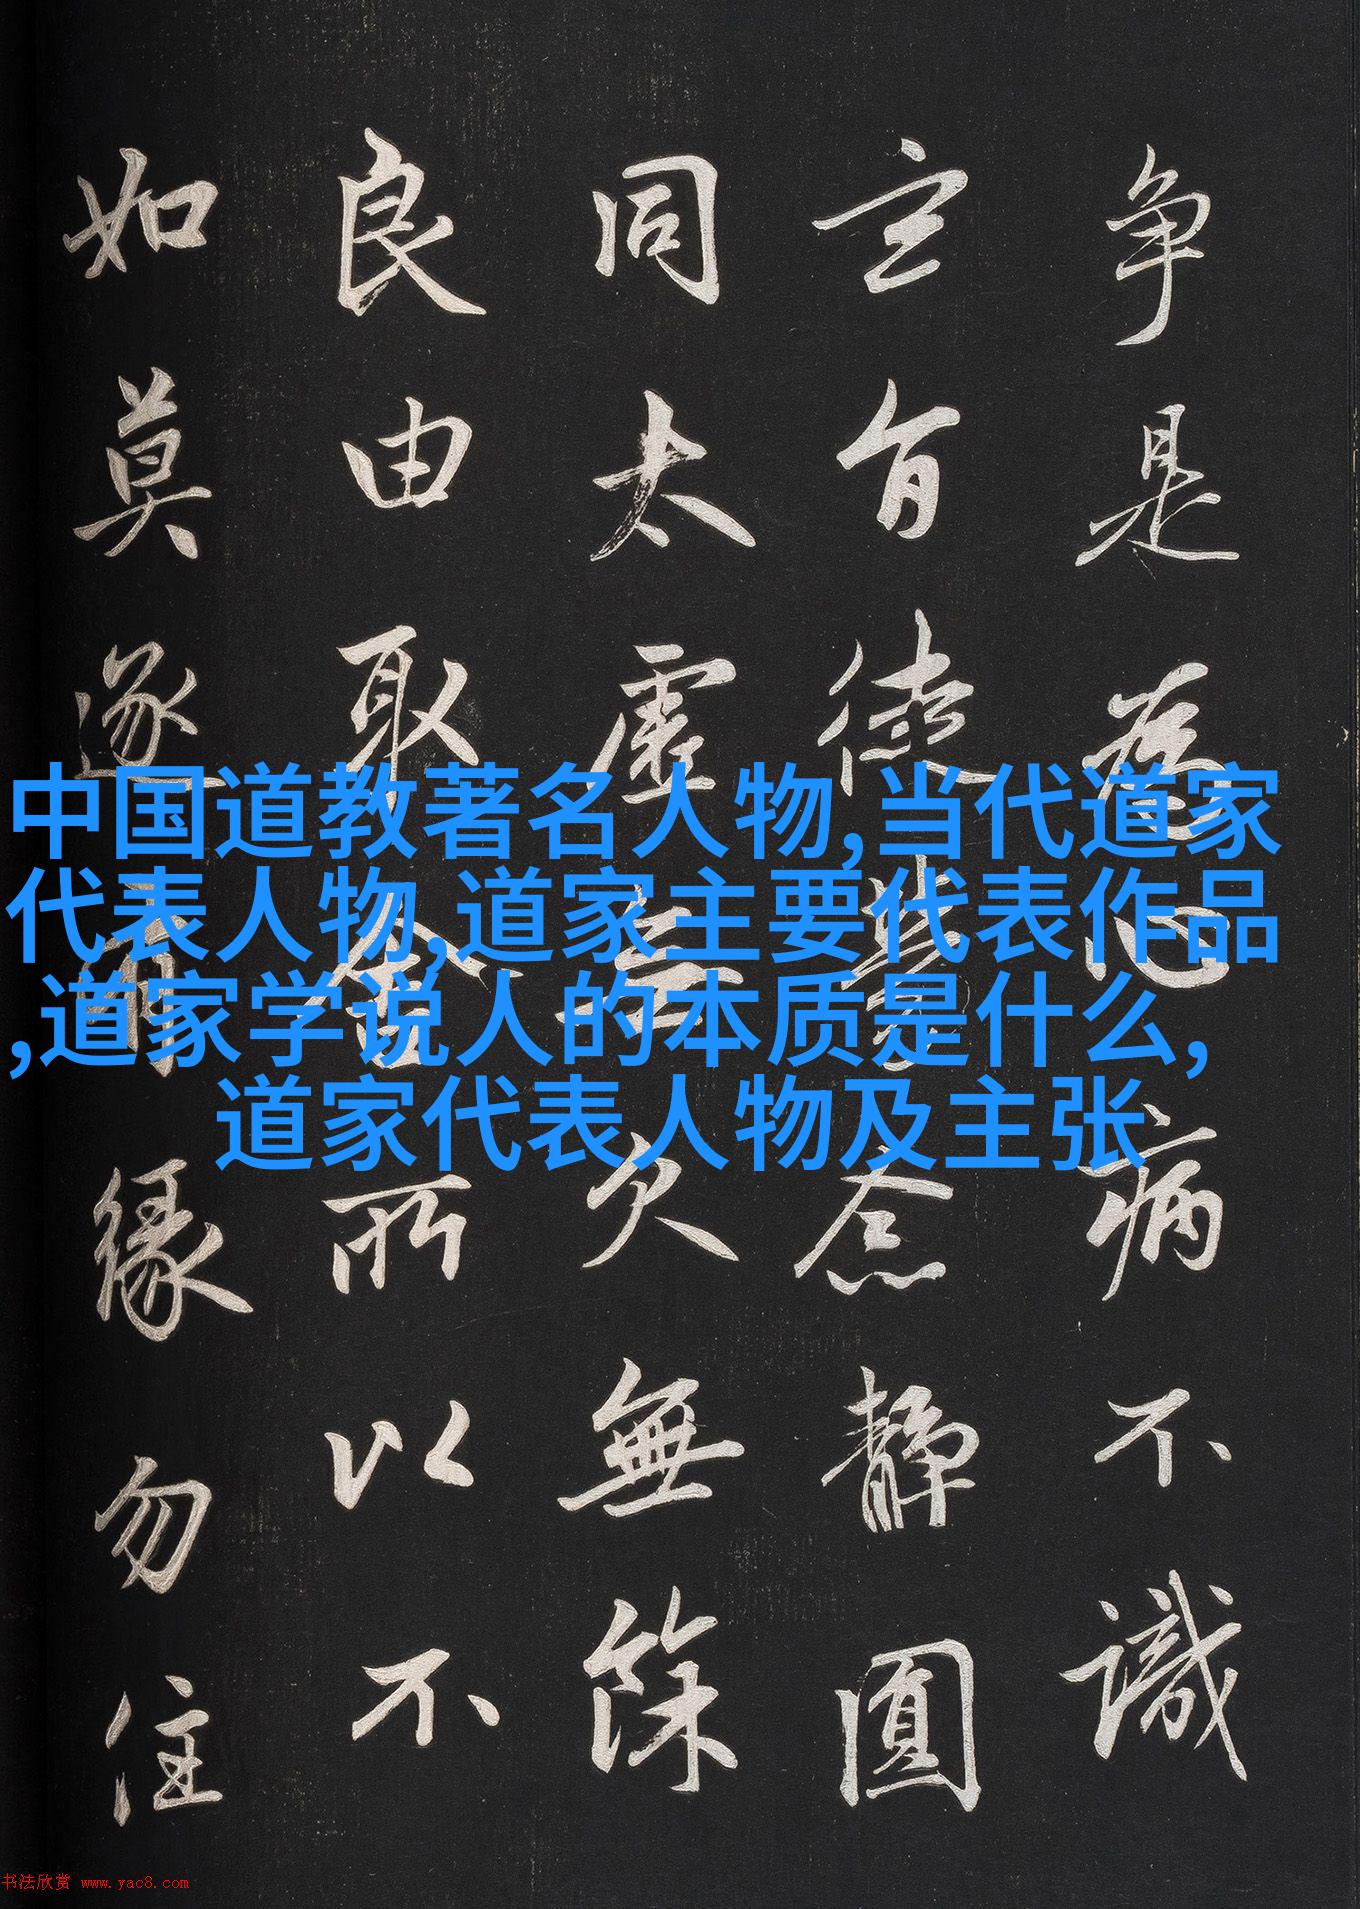 中国道教著名人物,当代道家
代表人物,道家主要代表作品
,道家学说人的本质是什么,
道家代表人物及主张
争是為心病不識
玄旨徒勞念靜圓
同太虛无欠無餘
良由取舍所以不
如莫逐有緣勿住
书法欣赏 www.yac8.com